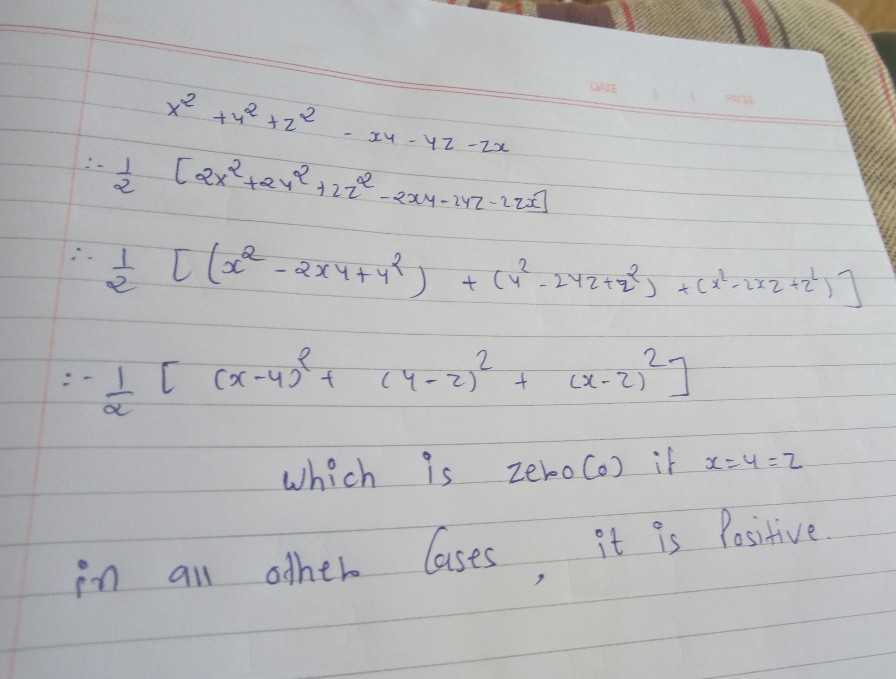 DATE
PAGE
x² + y² + z² - xy - yz - zx
∴ 1/2 [2x² + 2y² + 2z² - 2xy - 2yz - 2zx]
∴ 1/2 [(x² - 2xy + y²) + (y² - 2yz + z²) + (x² - 2xz + z²)]
∴ 1/2 [(x-y)² + (y-z)² + (x-z)²]
which is zero(0) if x=y=z
in all other Cases, it is Positive.